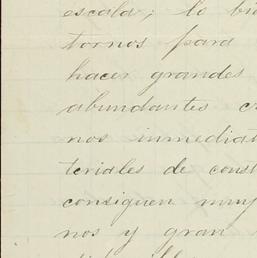 escala; lo bie
tornos para
hacer grandes
abundantes c
nos inmediat
teriales de const
consiguen muy
nos y gran